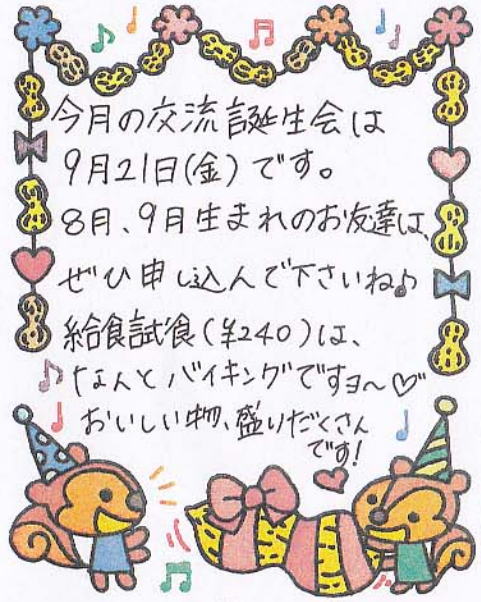 今月の交流誕生会は
9月21日(金)です。
8月、9月生まれのお友達は、
ぜひ申し込んで下さいね♪
給食試食(¥240)は、
なんとバイキングですョ〜♡
おいしい物、盛りだくさん
です!